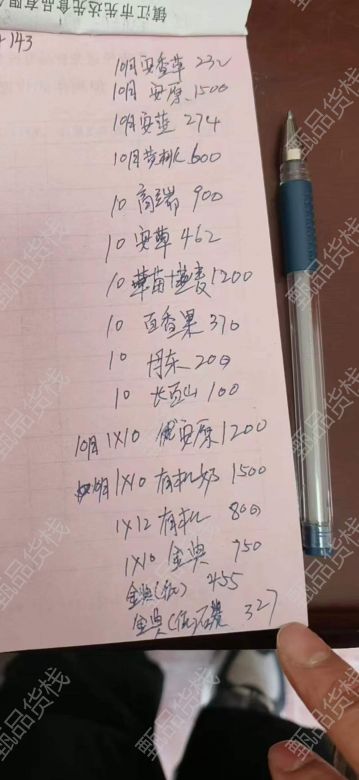 镇江市先达先食品有限
143
10月安香草 232
10月安原 1500
10月安蓝 274
10月黄桃 600
10 高端 900
10 安草 462
10 草苗+燕麦 1200
10 百香果 370
10 丹东 200
10 长百山 100
10月 1X10 优安原 1200
10月 1X10 有机奶 1500
1X12 有机 800
1X10 金典 750
金典(低) 455
金典(低) 327
甄品货栈